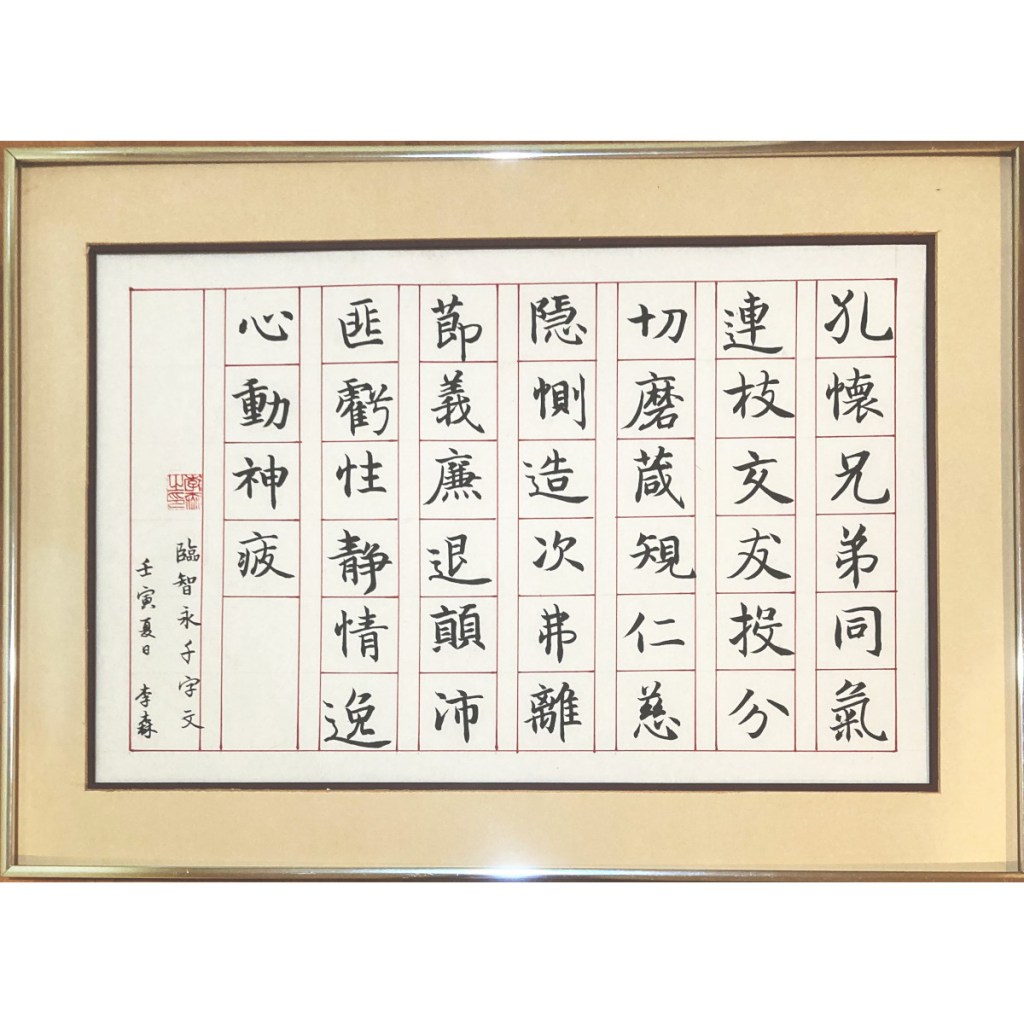 孔懐兄弟同氣
連枝交友投分
切磨葴規仁慈
隱惻造次弗離
莭義廉退顛沛
匪虧性静情逸
心動神疲
臨智永千字文
壬寅夏日 李森
李森之印